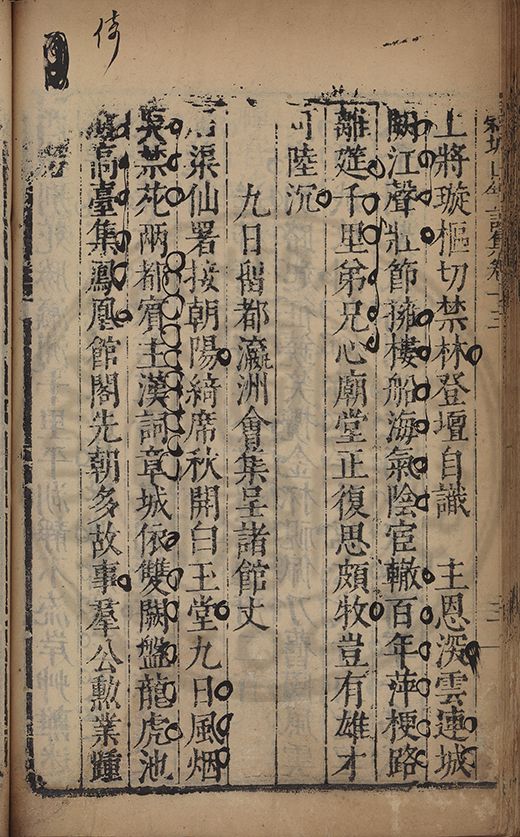 上將璇樞切禁林登壇自識 主恩深雲連城
闕江聲壯節擁樓船海氣陰宦轍百年萍梗路
離筵千里弟兄心廟堂正復思頗牧豈有雄才
可陸沉
九日留都瀛洲會集呈諸館丈
渠仙署接朝陽綺席秋開白玉堂九日風烟
吳禁苑兩都賓主漢詞章城依雙闕盤龍虎池
高臺集鳳凰館閣先朝多故事羣公勳業踵